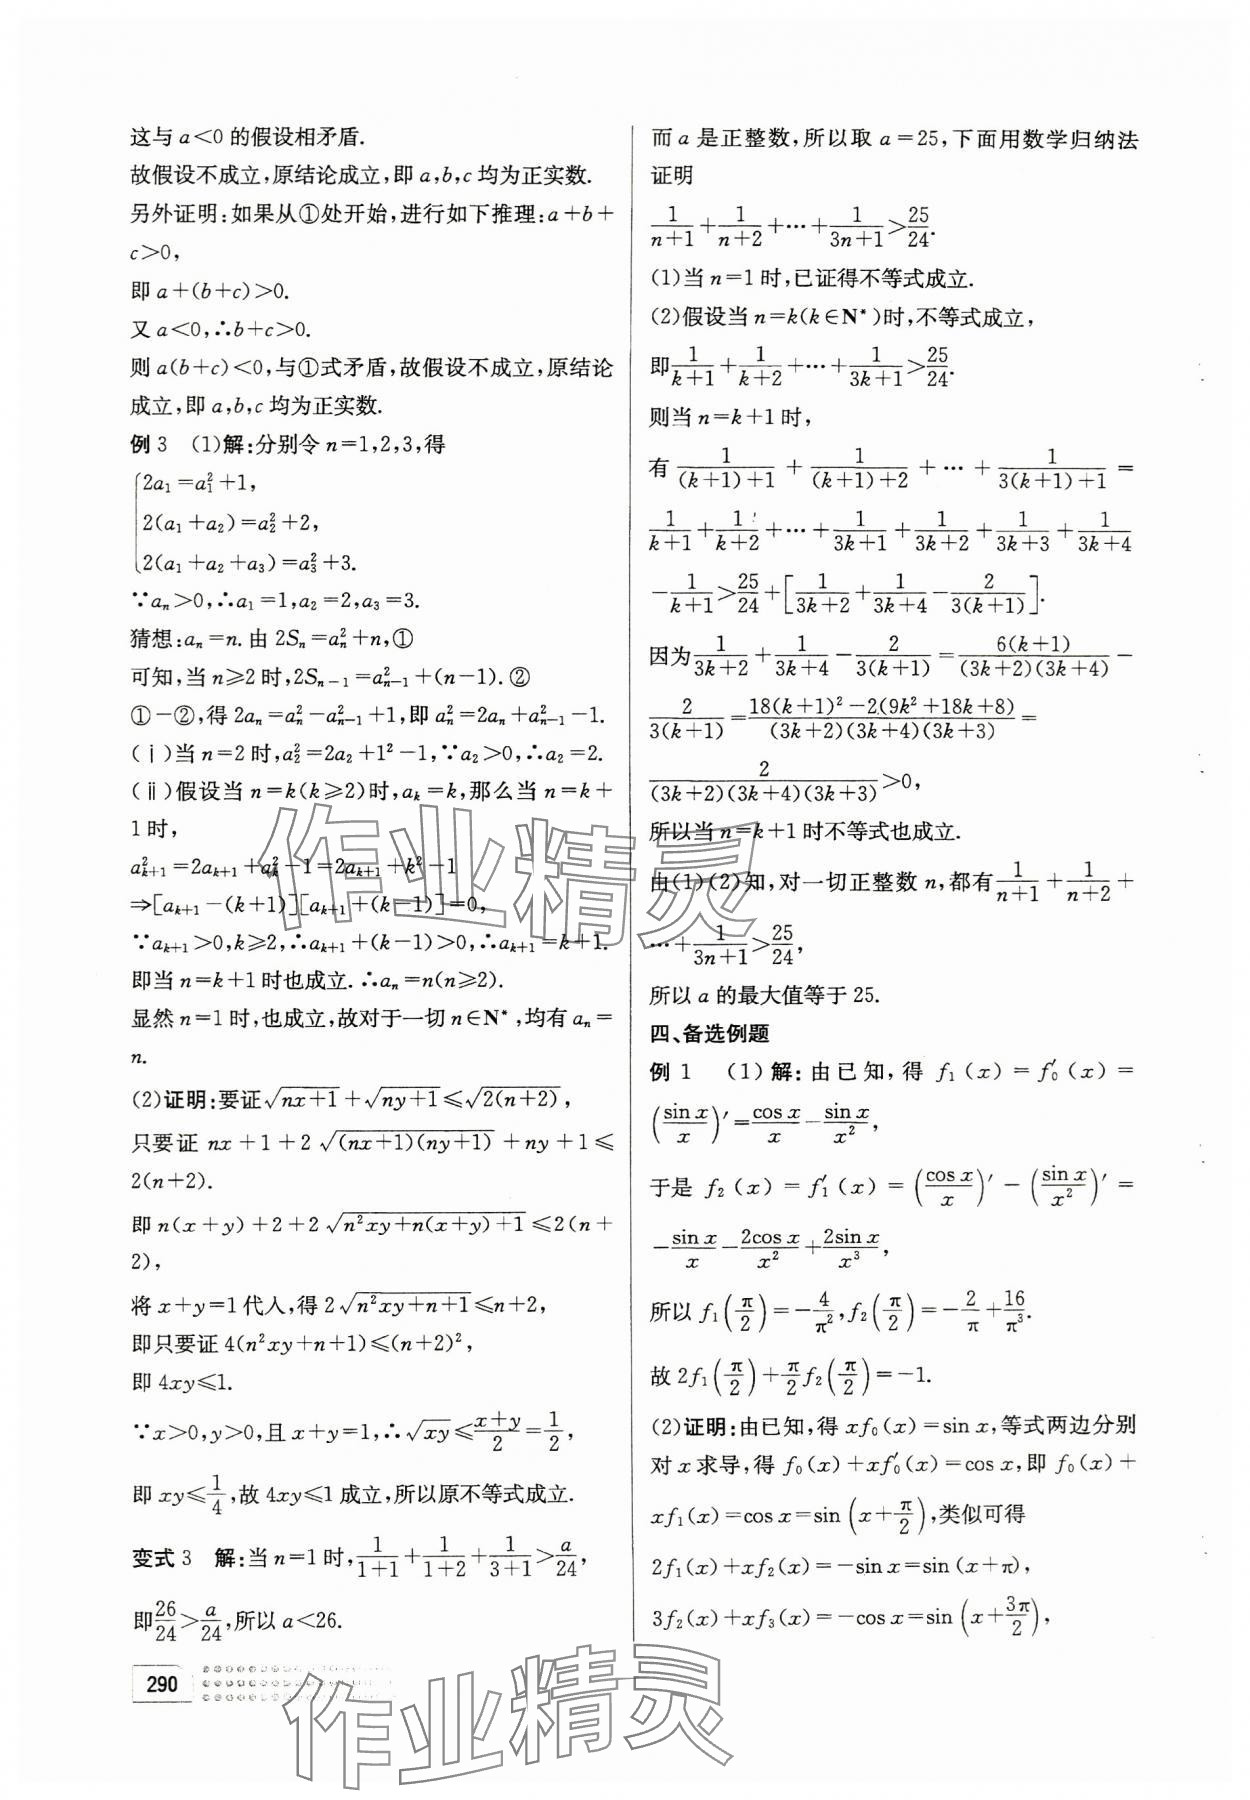 这与 a<0 的假设相矛盾.
故假设不成立,原结论成立,即 a,b,c 均为正实数.
另外证明:如果从①处开始,进行如下推理:a+b+
c>0,
即 a+(b+c)>0.
又 a<0,∴b+c>0.
则 a(b+c)<0,与①式矛盾,故假设不成立,原结论
成立,即 a,b,c 均为正实数.
例 3 (1)解:分别令 n=1,2,3,得
{2a₁=a₁²+1,
2(a₁+a₂)=a₂²+2,
2(a₁+a₂+a₃)=a₃²+3.
∵aₙ>0,∴a₁=1,a₂=2,a₃=3.
猜想:aₙ=n. 由 2Sₙ=aₙ²+n,①
可知,当 n⩾2 时,2Sₙ₋₁=aₙ₋₁²+(n-1). ②
①-②,得 2aₙ=aₙ²-aₙ₋₁²+1,即 aₙ²=2aₙ+aₙ₋₁²-1.
(ⅰ)当 n=2 时,a₂²=2a₂+1²-1,∵a₂>0,∴a₂=2.
(ⅱ)假设当 n=k(k⩾2)时,aₖ=k,那么当 n=k+
1时,
aₖ₊₁²=2aₖ₊₁+aₖ²-1=2aₖ₊₁+k²-1
⇒[aₖ₊₁-(k+1)][aₖ₊₁+(k-1)]=0,
∵aₖ₊₁>0,k⩾2,∴aₖ₊₁+(k-1)>0,∴aₖ₊₁=k+1.
即当 n=k+1 时也成立. ∴aₙ=n(n⩾2).
显然 n=1 时,也成立,故对于一切 n∈N*,均有 aₙ=
n.
(2)证明:要证√(nx+1)+√(ny+1)⩽√(2(n+2)),
只要证 nx+1+2√((nx+1)(ny+1))+ny+1⩽
2(n+2).
即 n(x+y)+2+2√(n²xy+n(x+y)+1)⩽2(n+
2),
将 x+y=1 代入,得 2√(n²xy+n+1)⩽n+2,
即只要证 4(n²xy+n+1)⩽(n+2)²,
即 4xy⩽1.
∵x>0,y>0,且 x+y=1,∴√(xy)⩽(x+y)/2=1/2,
即 xy⩽1/4,故 4xy⩽1 成立,所以原不等式成立.
变式 3 解:当 n=1 时,1/(1+1)+1/(1+2)+1/(3+1)>a/24,
即26/24>a/24,所以 a<26.
290
而 a 是正整数,所以取 a=25,下面用数学归纳法
证明
1/(n+1)+1/(n+2)+…+1/(3n+1)>25/24.
(1)当 n=1 时,已证得不等式成立.
(2)假设当 n=k(k∈N*)时,不等式成立,
即1/(k+1)+1/(k+2)+…+1/(3k+1)>25/24.
则当 n=k+1 时,
有 1/((k+1)+1)+1/((k+1)+2)+…+1/(3(k+1)+1)=
1/(k+1)+1/(k+2)+…+1/(3k+1)+1/(3k+2)+1/(3k+3)+1/(3k+4)
-1/(k+1)>25/24+[1/(3k+2)+1/(3k+4)-2/(3(k+1))].
因为1/(3k+2)+1/(3k+4)-2/(3(k+1))=6(k+1)/((3k+2)(3k+4))-
2/(3(k+1))=(18(k+1)²-2(9k²+18k+8))/((3k+2)(3k+4)(3k+3))=
2/((3k+2)(3k+4)(3k+3))>0,
所以当 n=k+1 时不等式也成立.
由(1)(2)知,对一切正整数 n,都有1/(n+1)+1/(n+2)+
…+1/(3n+1)>25/24,
所以 a 的最大值等于 25.
四、备选例题
例 1 (1)解:由已知,得 f₁(x)=f₀′(x)=
(sin x/x)′=cos x/x-sin x/x²,
于是 f₂(x)=f₁′(x)=(cos x/x)′-(sin x/x²)′=
-sin x/x-2cos x/x²+2sin x/x³,
所以 f₁(π/2)=-4/π²,f₂(π/2)=-2/π+16/π³.
故 2f₁(π/2)+π/2f₂(π/2)=-1.
(2)证明:由已知,得 xf₀(x)=sin x,等式两边分别
对 x 求导,得 f₀(x)+xf₀′(x)=cos x,即 f₀(x)+
xf₁(x)=cos x=sin(x+π/2),类似可得
2f₁(x)+xf₂(x)=-sin x=sin(x+π),
3f₂(x)+xf₃(x)=-cos x=sin(x+3π/2),
作业精灵
作业精灵